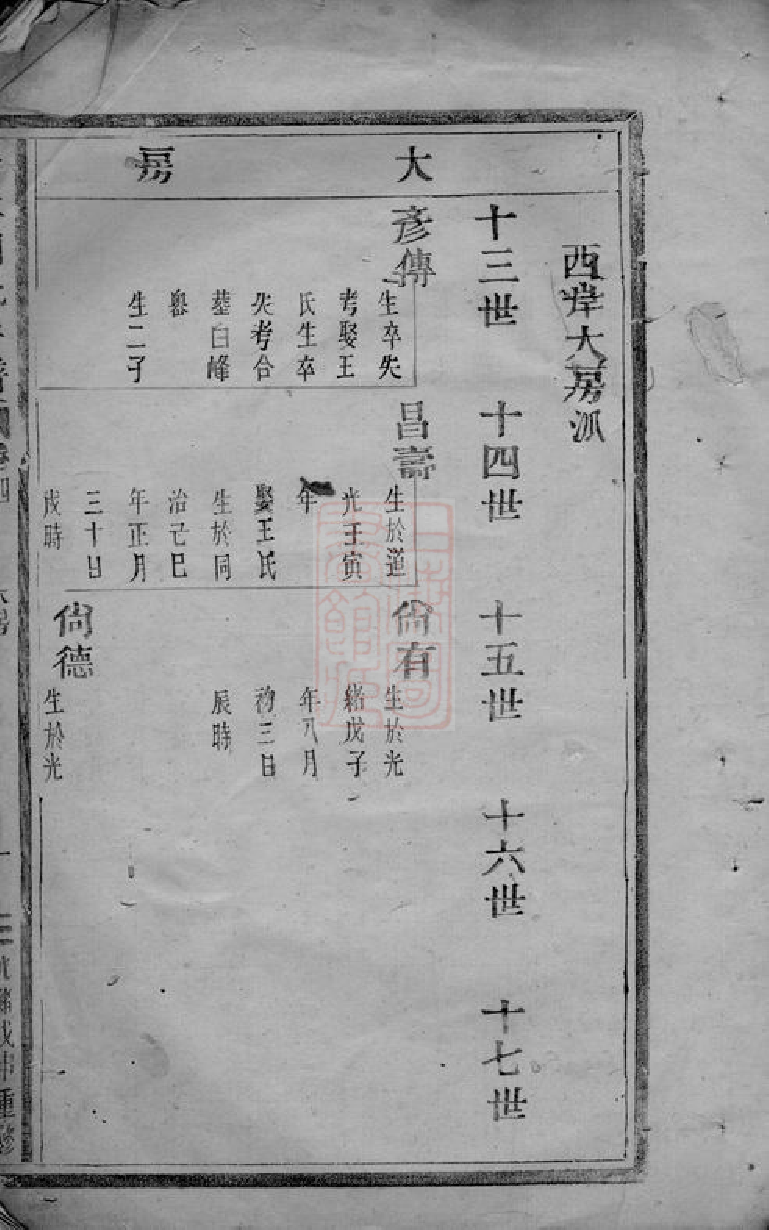 大房
西岸大房派
十三世
十四世
十五世
十六世
十七世
彥傳
生卒失
考娶王
氏生卒
失考合
塟白峰
嶴
生二子
昌壽
生於道
光壬寅
年
娶王氏
生於同
治己巳
年正月
三十日
戌時
尙有
生於光
緒戊子
年八月
初三日
辰時
尙德
生於光